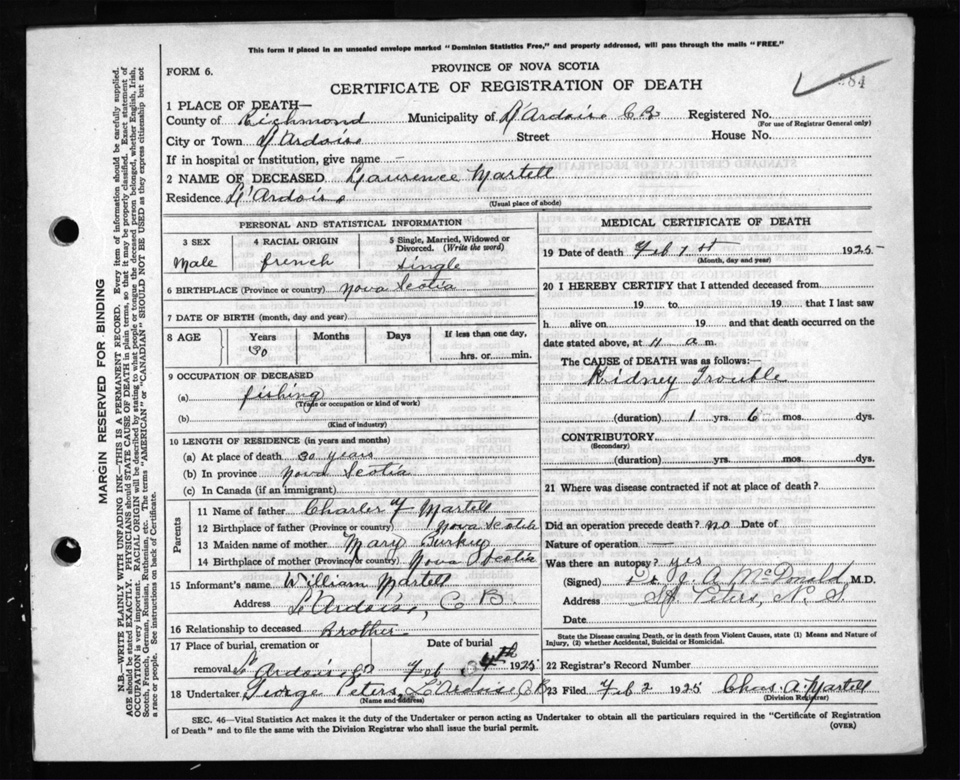 This form if placed in an unsealed envelope marked "Dominion Statistics Free," and properly addressed, will pass through the mails "FREE."
FORM 6.
PROVINCE OF NOVA SCOTIA
CERTIFICATE OF REGISTRATION OF DEATH
284
1 PLACE OF DEATH—
County of Richmond Municipality of L'Ardoise C B Registered No.
(For use of Registrar General only)
City or Town L'Ardoise Street House No.
If in hospital or institution, give name –
2 NAME OF DECEASED Laurence Martell
Residence L'Ardoise
(Usual place of abode)
PERSONAL AND STATISTICAL INFORMATION
3 SEX
Male
4 RACIAL ORIGIN
french
5 Single, Married, Widowed or Divorced. (Write the word)
Single
6 BIRTHPLACE (Province or country) Nova Scotia
7 DATE OF BIRTH (month, day and year)
8 AGE Years Months Days If less than one day,
30 hrs. or min.
9 OCCUPATION OF DECEASED
(a) fishing
(Trade or occupation or kind of work)
(b)
(Kind of industry)
10 LENGTH OF RESIDENCE (in years and months)
(a) At place of death 30 years
(b) In province Nova Scotia
(c) In Canada (if an immigrant)
Parents
11 Name of father Charles F Martell
12 Birthplace of father (Province or country) Nova Scotia
13 Maiden name of mother Mary Burkey
14 Birthplace of mother (Province or country) Nova Scotia
15 Informant's name William Martell
Address L'Ardoise, C B.
16 Relationship to deceased Brother
17 Place of burial, cremation or Date of burial
removal L'Ardoise Feb 4th 1925
18 Undertaker George Peters, L'Ardoise C B
(Name and address)
MEDICAL CERTIFICATE OF DEATH
19 Date of death Feb 1st 1925
(Month, day and year)
20 I HEREBY CERTIFY that I attended deceased from
19 to 19 that I last saw
h alive on 19 and that death occurred on
date stated above, at 11 a m.
The CAUSE of DEATH was as follows:—
Kidney Trouble
(duration) 1 yrs. 6 mos. dys.
CONTRIBUTORY
(Secondary)
(duration) yrs. mos. dys.
21 Where was disease contracted if not at place of death?
Did an operation precede death? no Date of
Nature of operation —
Was there an autopsy? yes
(Signed) Dr J. A. McDonald, M.D.
Address St Peters, N. S
Date
State the Disease causing Death, or in death from Violent Causes, state (1) Means and Nature of
Injury, (2) whether Accidental, Suicidal or Homicidal.
22 Registrar's Record Number
23 Filed Feb 2 1925 Chas. A. Martell
(Division Registrar)
SEC. 46—Vital Statistics Act makes it the duty of the Undertaker or person acting as Undertaker to obtain all the particulars required in the "Certificate of Registration
of Death" and to file the same with the Division Registrar who shall issue the burial permit. (OVER)
MARGIN RESERVED FOR BINDING
N.B.—WRITE PLAINLY WITH UNFADING INK—THIS IS A PERMANENT RECORD. Every item of information should be carefully supplied.
AGE should be stated EXACTLY. PHYSICIANS should STATE CAUSE OF DEATH in plain terms, so that it may be properly classified. Exact statement of
OCCUPATION is very important. RACIAL ORIGIN will be described by stating to what people or tongue the deceased person belonged, whether English, Irish,
Scotch, French, German, Russian, Ruthenian, etc. The terms "AMERICAN" or "CANADIAN" SHOULD NOT BE USED as they express citizenship but not
a race or people. See instructions on back of Certificate.